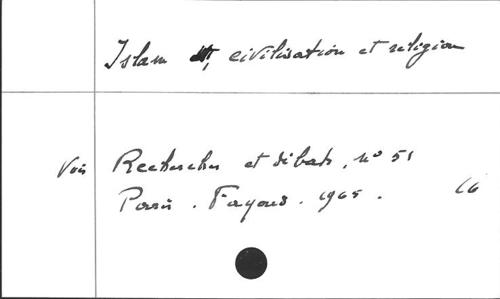 Islam, civilisation et religion
Voir Recherches et débats, n° 51
Paris. Fayard. 1965. 16